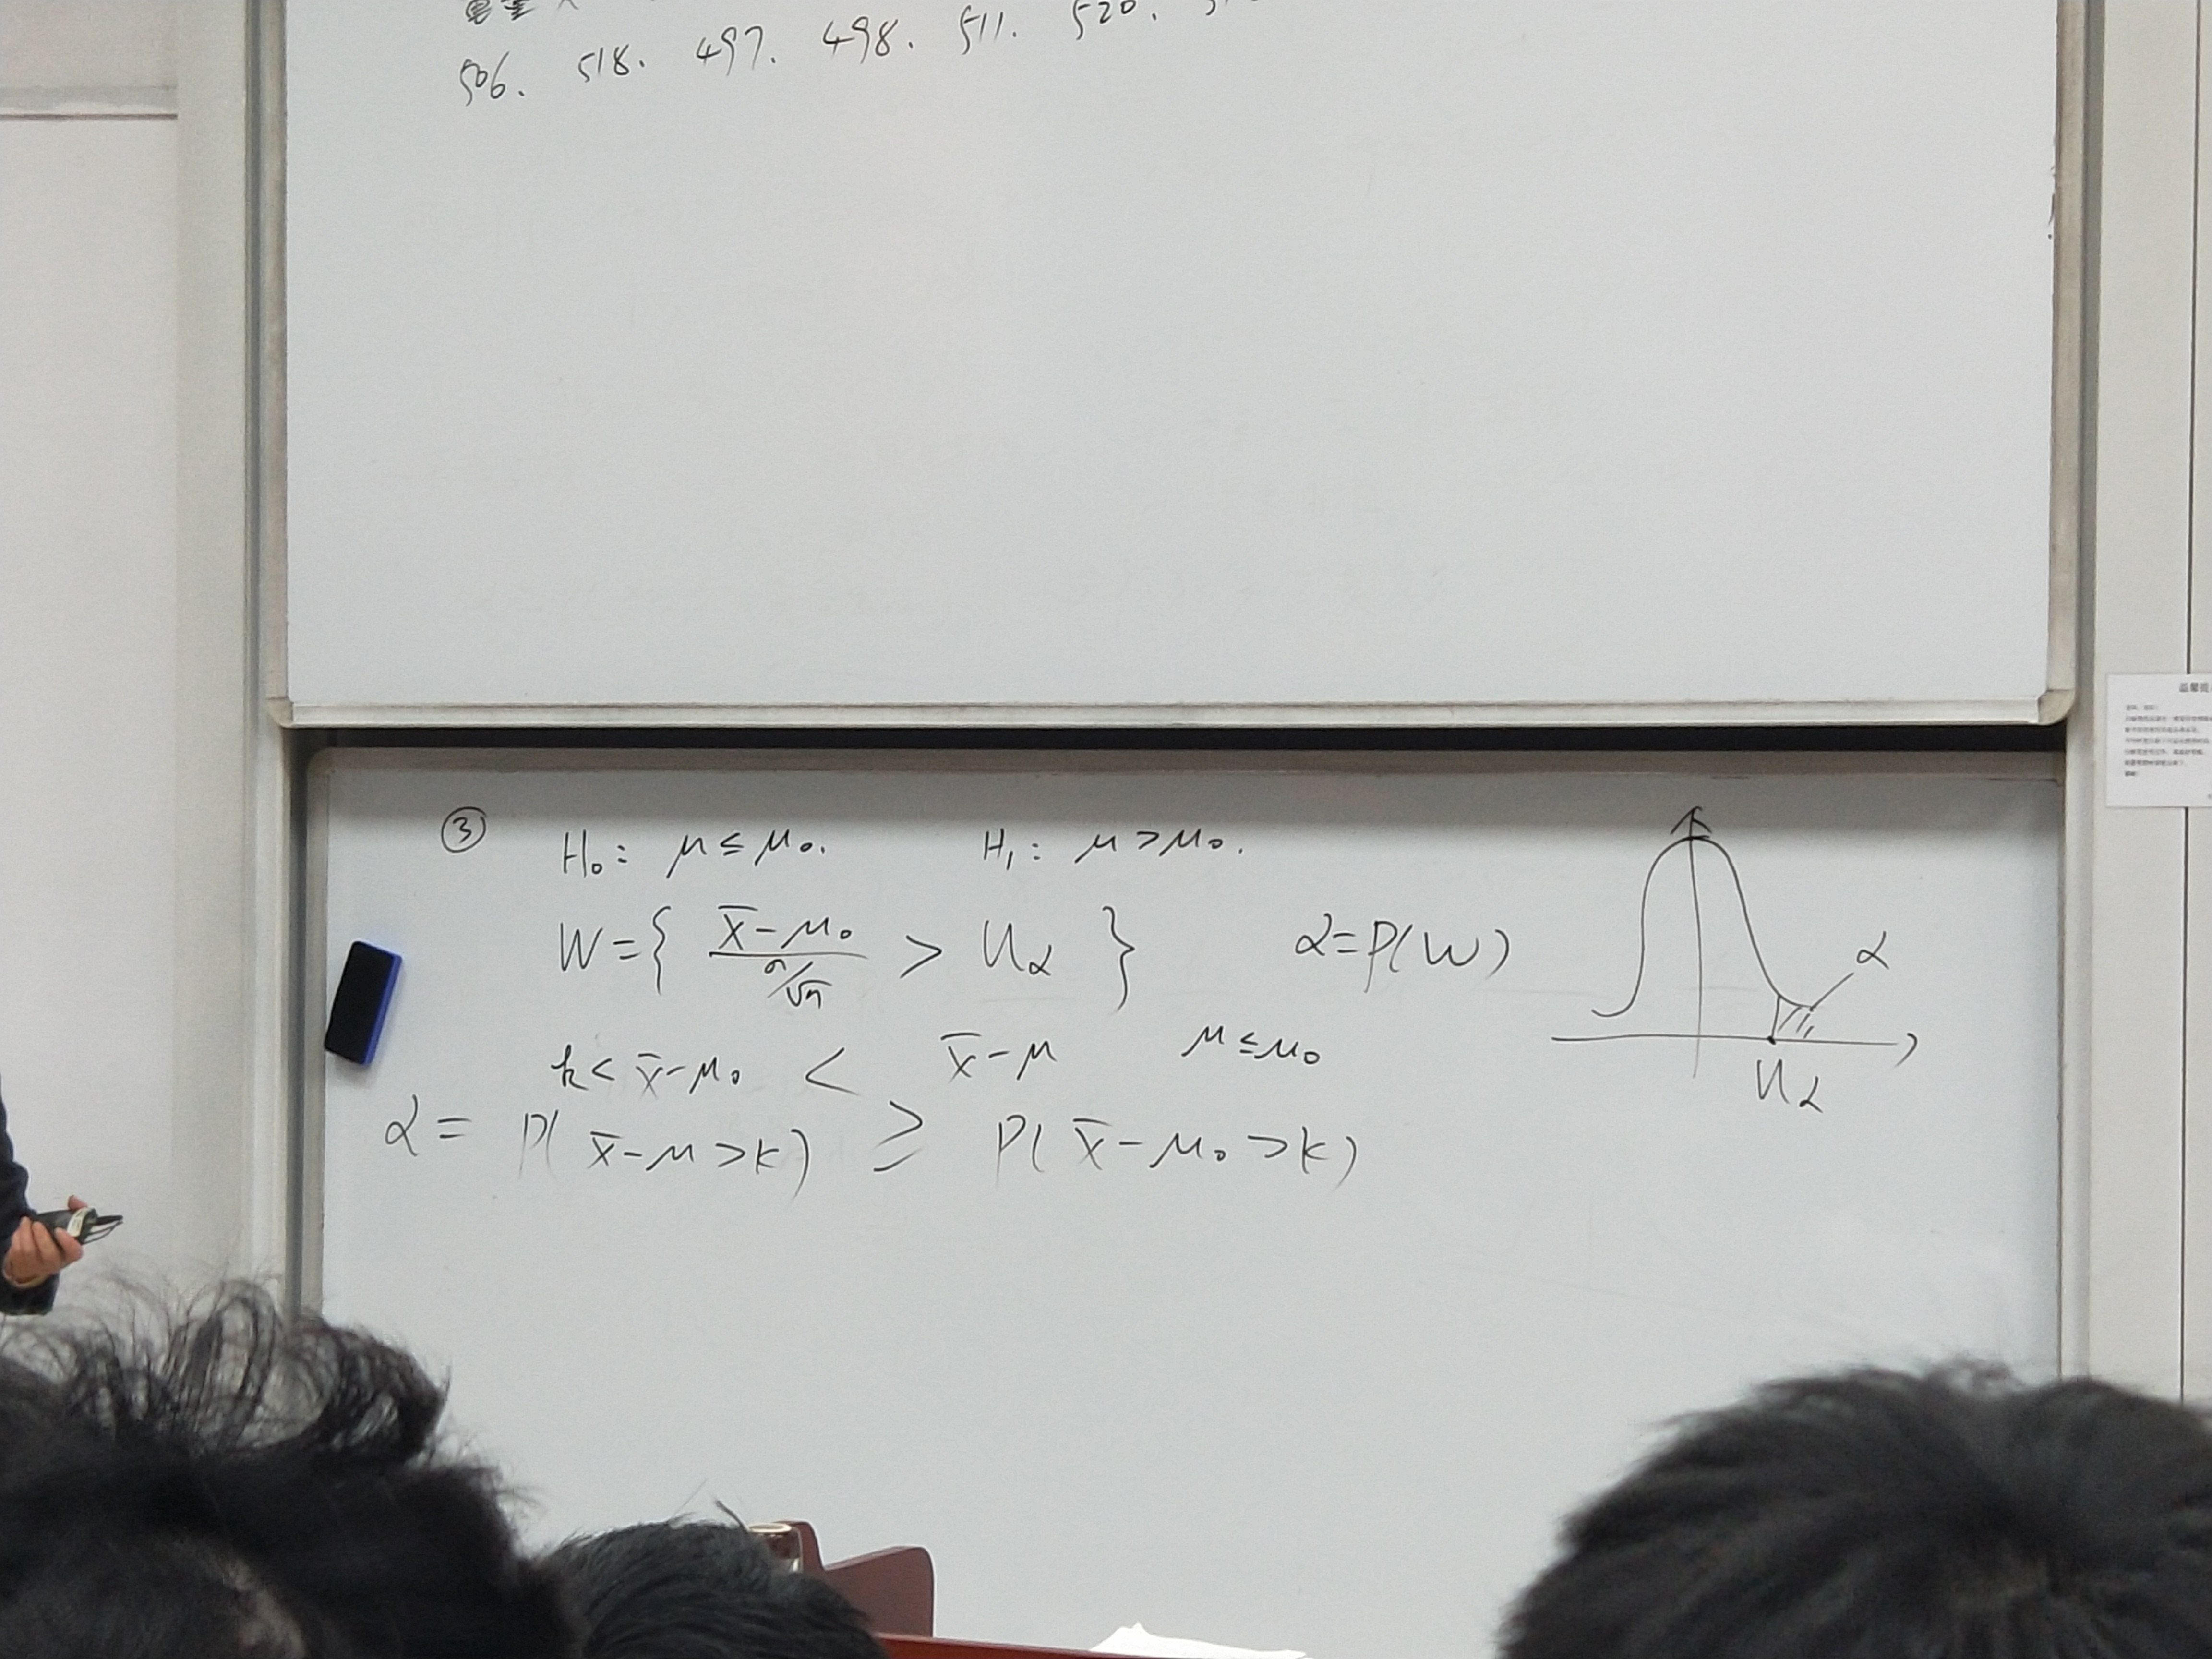 506. 518. 497. 498. 511. 520.
③ H₀: μ≤μ₀. H₁: μ>μ₀.
W={ (x̄-μ₀)/(σ/√n) > Uα } α=P(W)
α
k< x̄-μ₀ < x̄-μ μ≤μ₀
Uα
α= P( x̄-μ>k) ≥ P( x̄-μ₀>k)